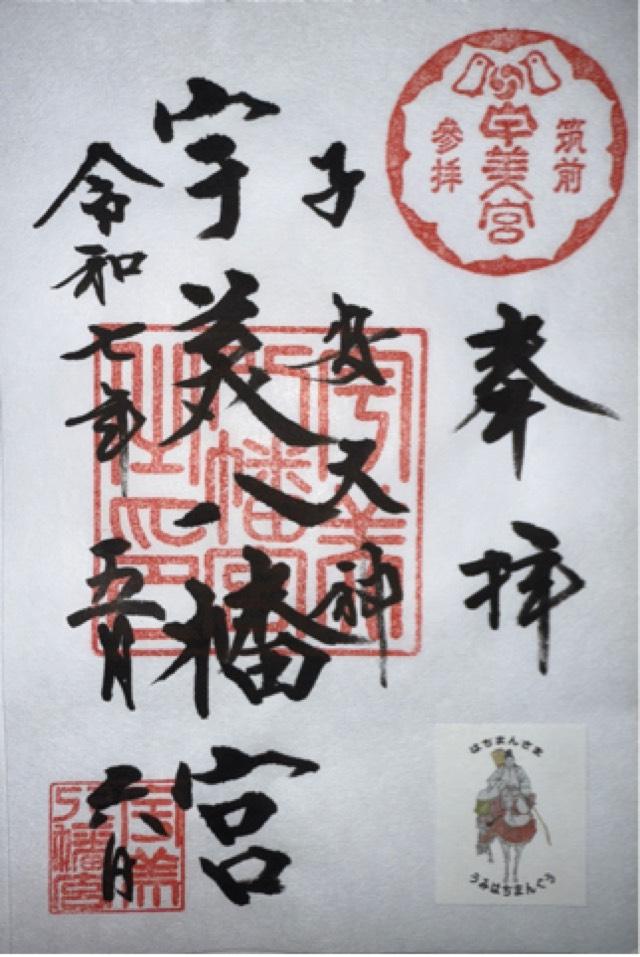 筑前
宇美宮
參拝
奉拝
子安大神
宇美八幡宮
令和七年五月六日
宇美
八幡宮
之印
宇美
八幡宮
はちまんさま
うみはちまんぐう